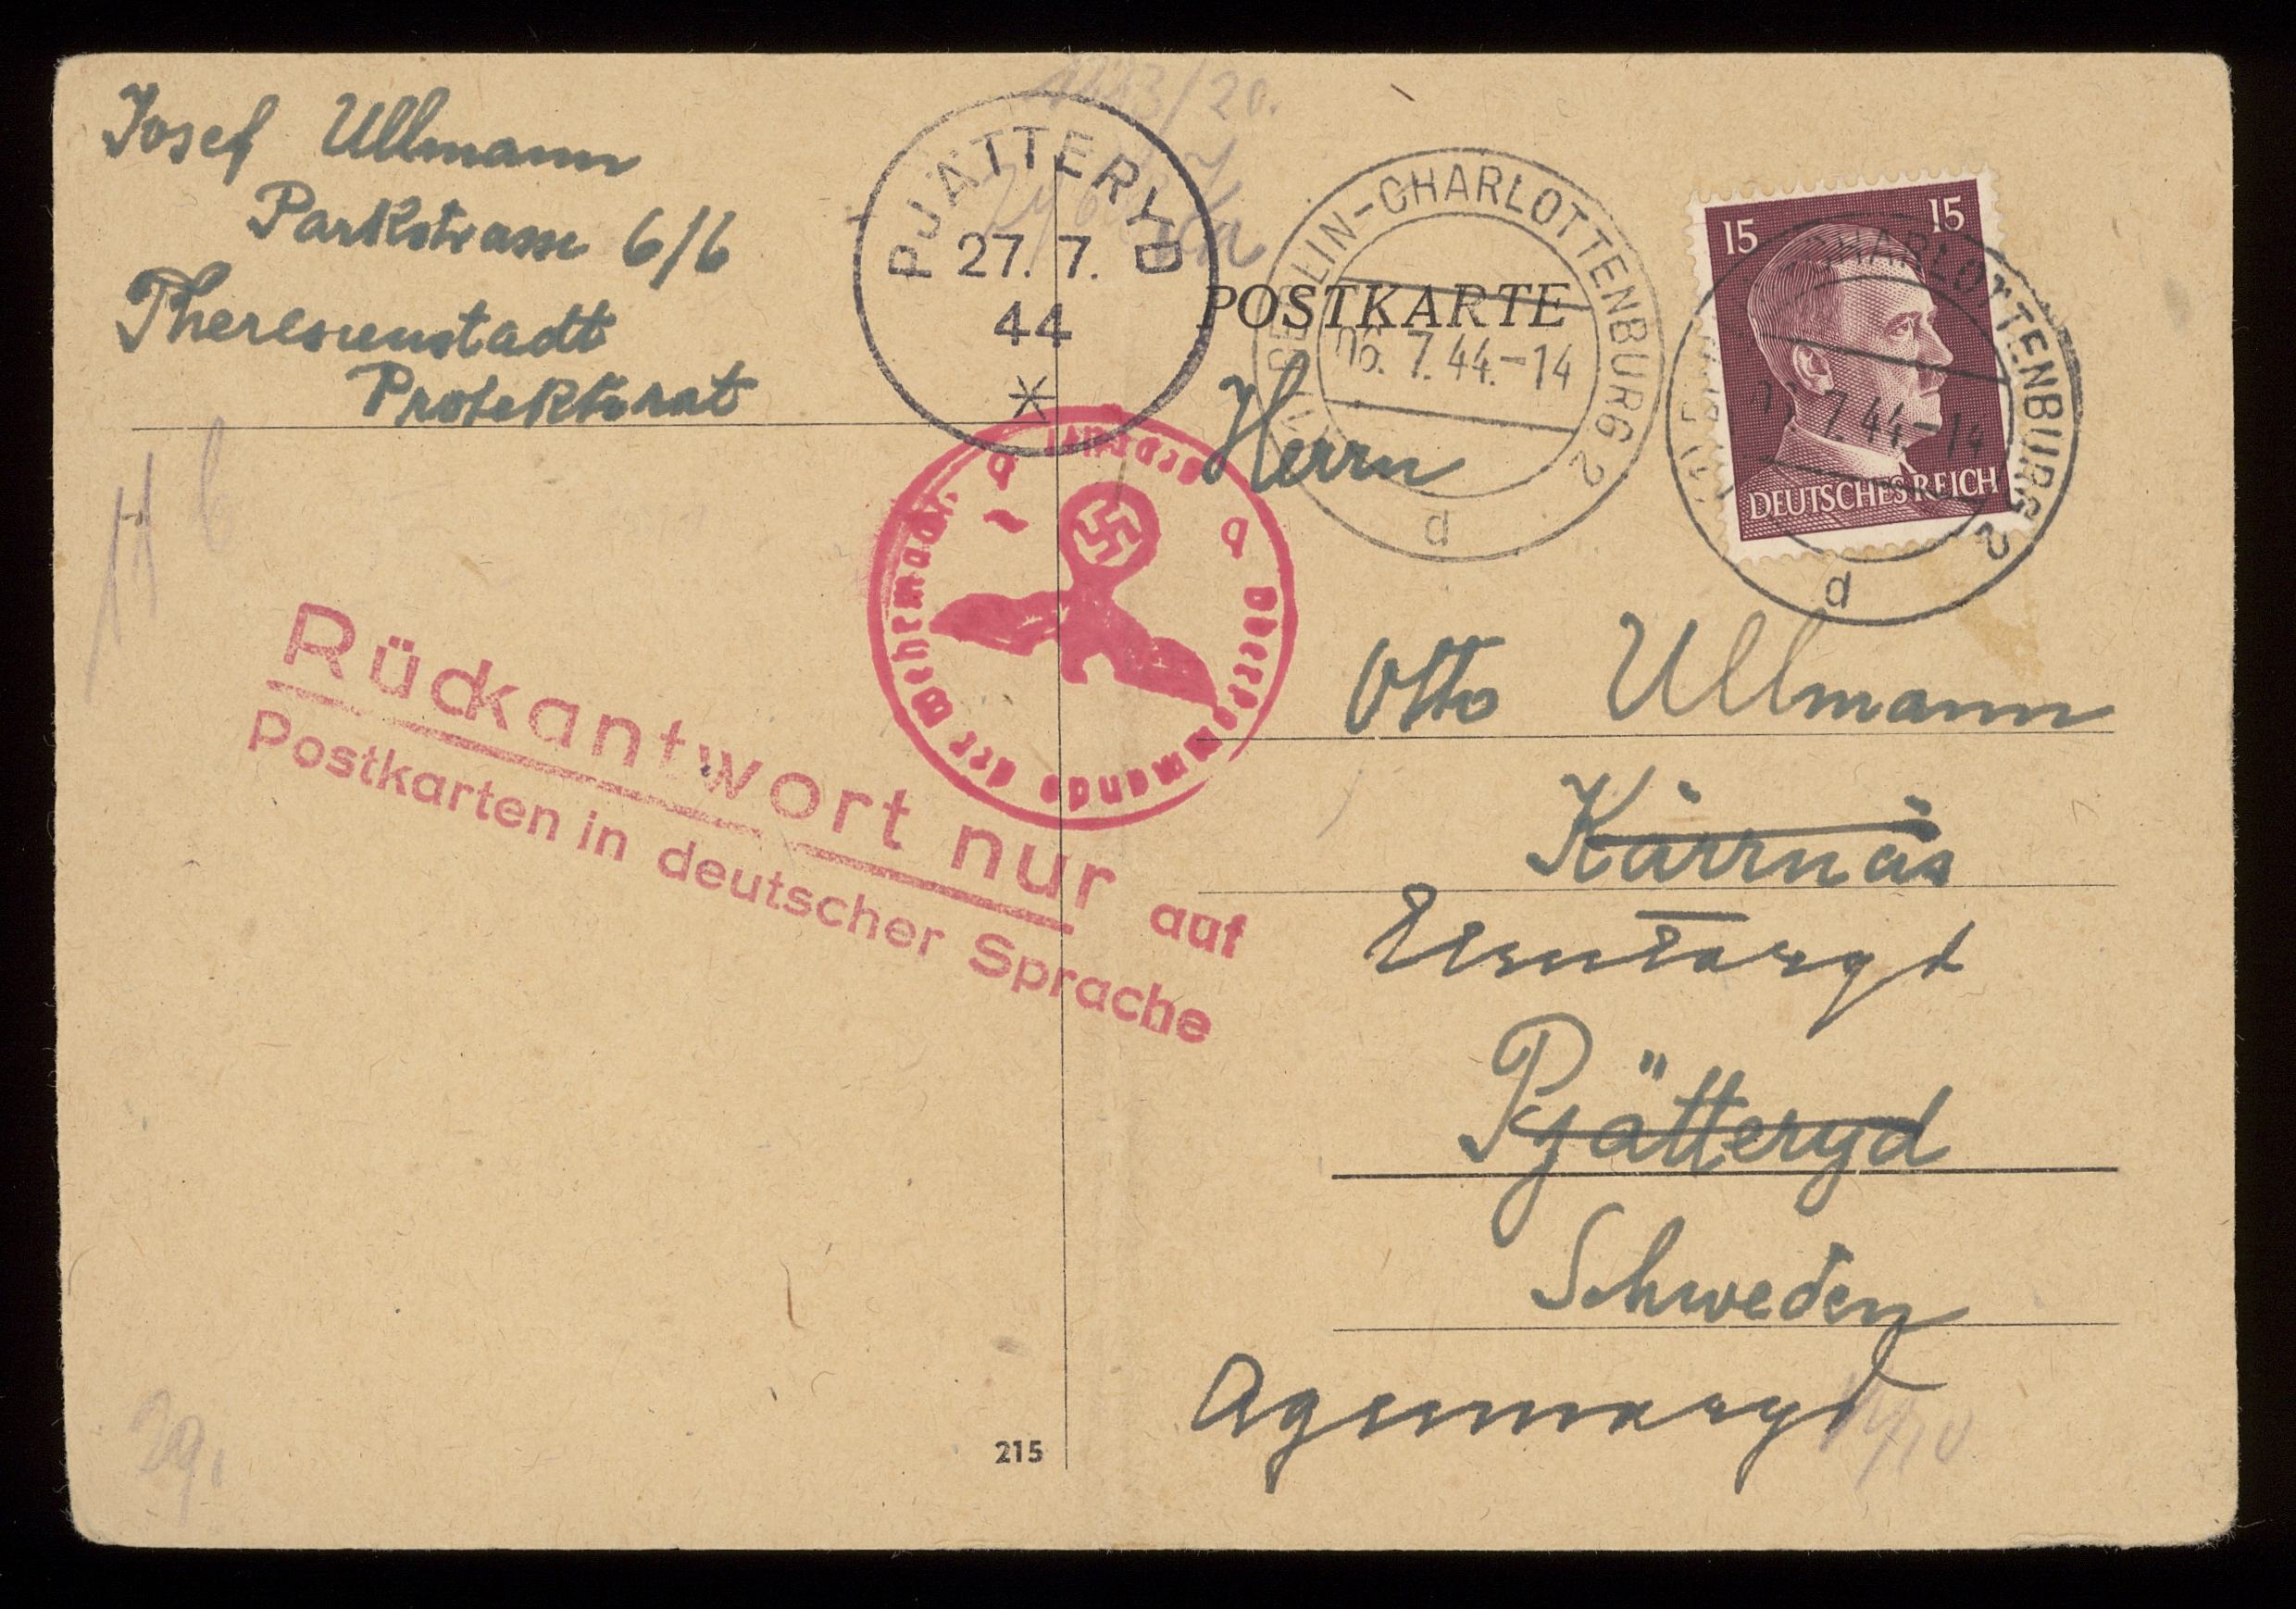 Josef Ullmann
Parkstrasse 6/6
Theresienstadt
Protektorat
PJÄTTERYD
27. 7.
44
BERLIN-CHARLOTTENBURG 2
7.44.-14
d
POSTKARTE
15 15
DEUTSCHES REICH
CHARLOTTENBURG 2
7.44.-14
d
Oberkommando der Wehrmacht
Herrn
Otto Ullmann
Kärrnäs
Pjätteryd
Schweden
Agunnaryd
Rückantwort nur auf
Postkarten in deutscher Sprache
29.
215